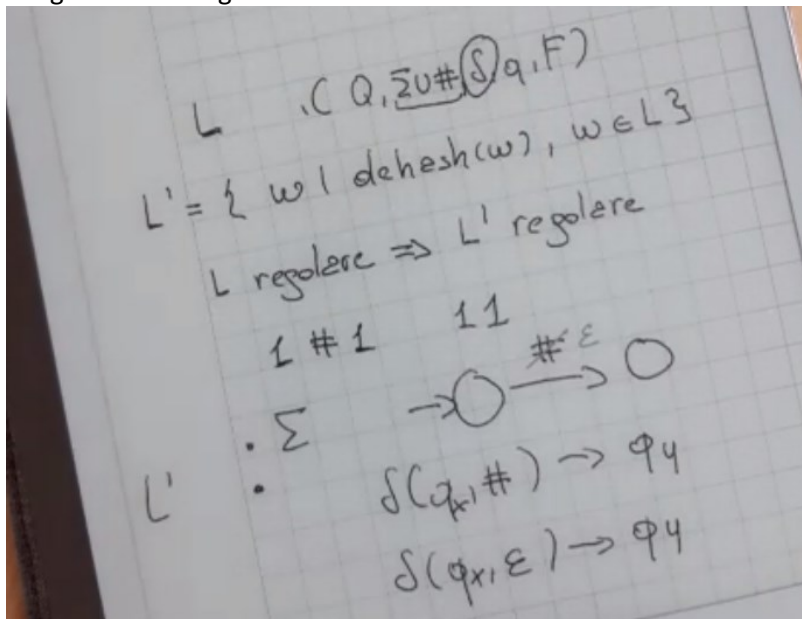 L .( Q, Σ∪# δ, q, F)
L' = { w | dehesh(w), w ∈ L }
L regolare => L' regolare
1 # 1 11
. Σ → # ε →
L' .
δ(qx, #) → qy
δ(qx, ε) → qy